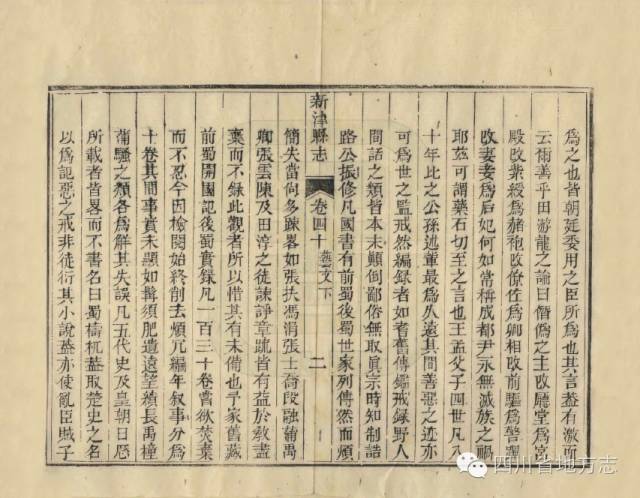 為之也皆朝廷委用之臣所為也其言蓋有激而
云爾善乎田游龍之論曰僭偽之主改廳堂為宮
殿改紫綬為赭袍改僚佐為卿相改前驅為警蹕
改妻妾為后妃何如常稱成都尹永無滅族之禍
耶茲可謂藥石切至之言也王孟父子四世凡八
十年比之公孫述輩最為久遠其間善惡之迹亦
可為世之監戒然編錄者如耆舊傳鑑戒錄野人
閒話之類皆本末顛倒鄙俗無取真宗時知制誥
路公振修凡國書有前蜀後蜀世家列傳然而煩
新津縣志
卷四十
藝文下
二
簡失當何多踈畧如張扶馮涓張士喬段融蒲禹
卿張雲陳及田淳之徒諫諍章䟽皆有益於敎盡
棄而不錄此觀者所以惜其有未備也予家舊藏
前蜀開國記後蜀實錄凡一百三十卷嘗欲焚棄
而不忍今因檢閱始終削去煩冗編年叙事分為
十卷其間事實未顯如髯須肥遺遠望續長禹糧
蒲騷之類各為解其失誤凡五代史及皇朝日厯
所載者皆畧而不書名曰蜀檮杌蓋取楚史之名
以為記惡之戒非徒衍其小說蓋亦使亂臣賊子
四川省地方志